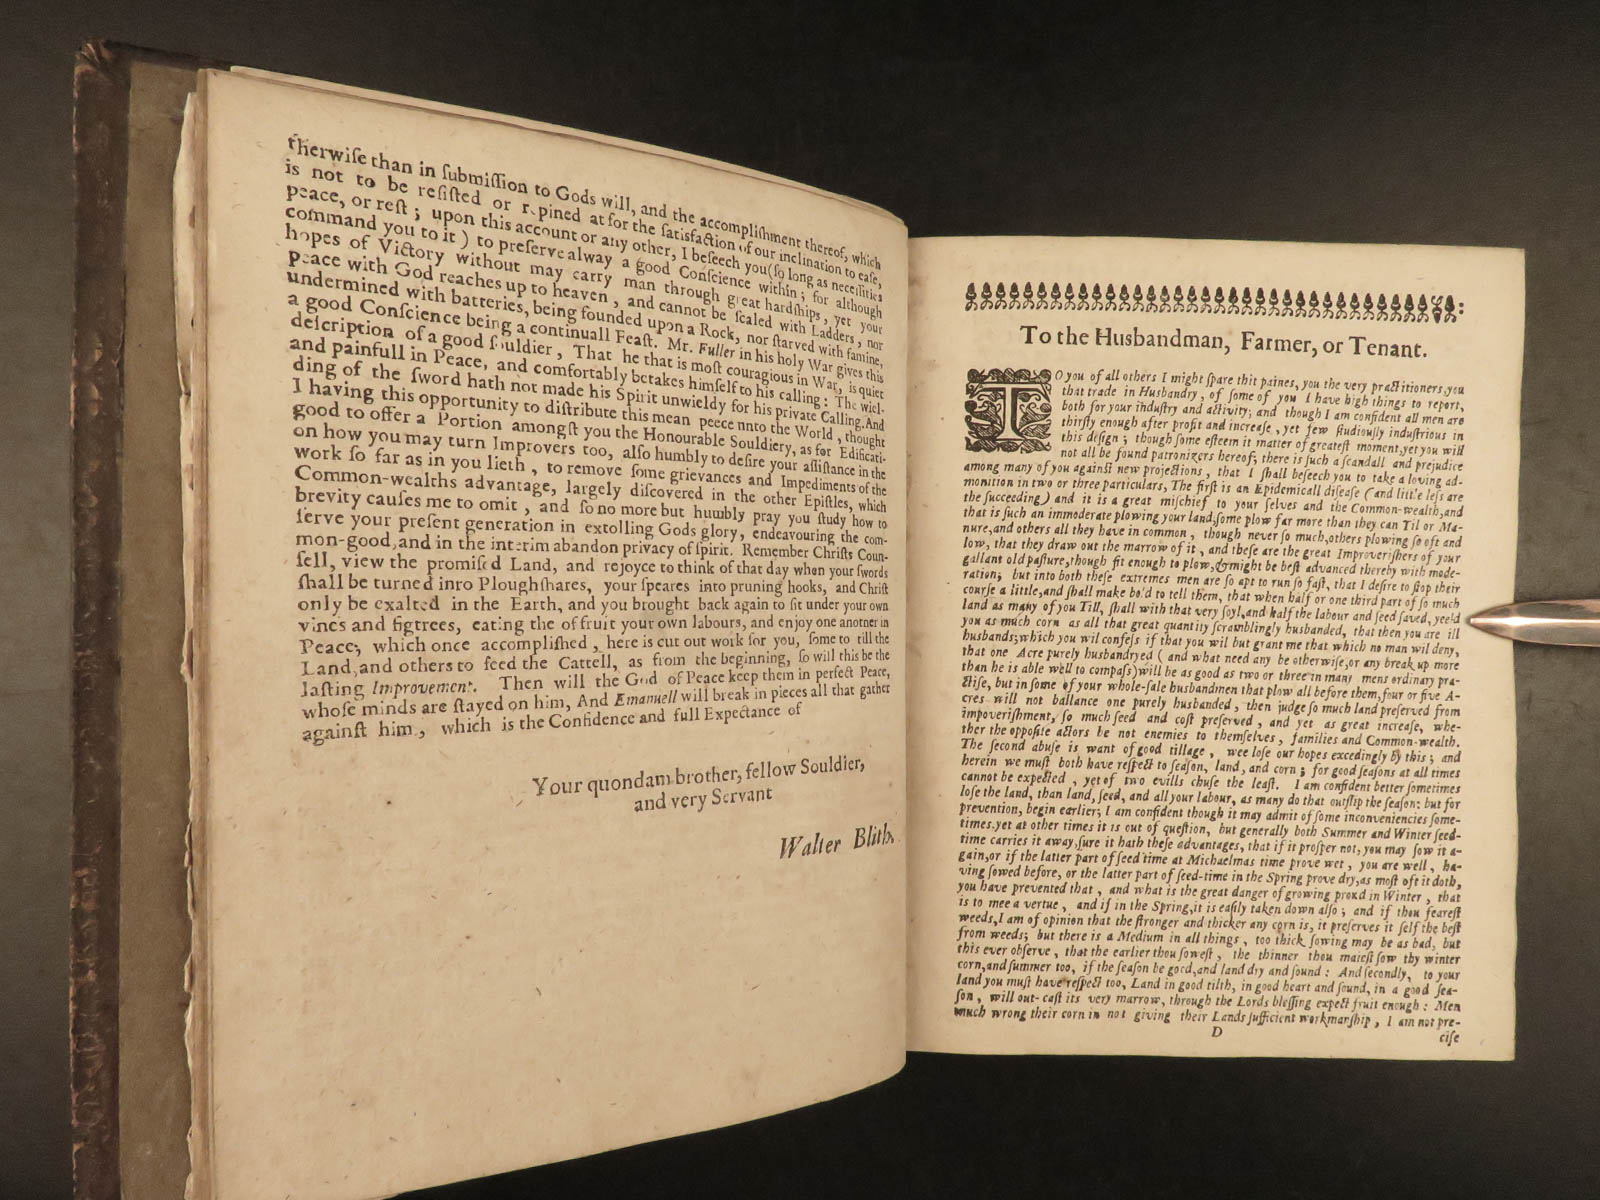 therwiſe than in ſubmiſſion to Gods will, and the accompliſhment thereof, which
is not to be reſiſted or repined at for the ſatisfaction of our inclination to eaſe,
peace, or reſt; upon this account or any other, I beſeech you (ſo long as neceſſities
command you to it) to preſerve alway a good Conſcience within; for although
hopes of Victory without may carry man through great hardſhips, yet your
peace with God reaches up to heaven, and cannot be ſcaled with Ladders, nor
undermined with batteries, being founded upon a Rock, nor ſtarved with famine,
a good Conſcience being a continuall Feaſt. Mr. Fuller in his holy War gives this
deſcription of a good ſouldier, That he that is moſt couragious in War, is quiet
and painfull in Peace, and comfortably betakes himſelf to his calling: The wiel-
ding of the ſword hath not made his Spirit unwieldy for his private Calling. And
I having this opportunity to diſtribute this mean peece nnto the World, thought
good to offer a Portion amongſt you the Honourable Souldiery, as for Edificati-
on how you may turn Improvers too, alſo humbly to deſire your aſſiſtance in the
work ſo far as in you lieth, to remove ſome grievances and Impediments of the
Common-wealths advantage, largely diſcovered in the other Epiſtles, which
brevity cauſes me to omit, and ſo no more but humbly pray you ſtudy how to
ſerve your preſent generation in extolling Gods glory, endeavouring the com-
mon-good, and in the interim abandon privacy of ſpirit. Remember Chriſts Coun-
ſell, view the promiſed Land, and rejoyce to think of that day when your ſwords
ſhall be turned inro Ploughſhares, your ſpeares into pruning hooks, and Chriſt
only be exalted in the Earth, and you brought back again to ſit under your own
vines and figtrees, eating the of fruit your own labours, and enjoy one anotner in
Peace, which once accompliſhed, here is cut out work for you, ſome to till the
Land, and others to feed the Cattell, as from the beginning, ſo will this be the
laſting Improvement. Then will the God of Peace keep them in perfect Peace,
whoſe minds are ſtayed on him, And Emanuell will break in pieces all that gather
againſt him, which is the Confidence and full Expectance of
Your quondam brother, fellow Souldier,
and very Servant
Walter Blith.
To the Husbandman, Farmer, or Tenant.
TO you of all others I might ſpare thit paines, you the very practitioners, you
that trade in Husbandry, of ſome of you I have high things to report,
both for your induſtry and activity; and though I am confident all men are
thirſty enough after profit and increaſe, yet few ſtudiouſly induſtrious in
this deſign; though ſome eſteem it matter of greateſt moment, yet you will
not all be found patronizers hereof; there is ſuch a ſcandall and prejudice
among many of you againſt new projections, that I ſhall beſeech you to take a loving ad-
monition in two or three particulars, The firſt is an Epidemicall diſeaſe (and little leſs are
the ſucceeding) and it is a great miſchief to your ſelves and the Common-wealth, and
that is ſuch an immoderate plowing your land, ſome plow far more than they can Til or Ma-
nure, and others all they have in common, though never ſo much, others plowing ſo oft and
low, that they draw out the marrow of it, and theſe are the great Improveriſhers of your
gallant old paſture, though fit enough to plow, & might be beſt advanced thereby with mode-
ration; but into both theſe extremes men are ſo apt to run ſo faſt, that I deſire to ſtop their
courſe a little, and ſhall make bo'd to tell them, that when half or one third part of ſo much
land as many of you Till, ſhall with that very ſoyl, and half the labour and ſeed ſaved, yeeld
you as much corn as all that great quantity ſcramblingly husbanded, that then you are ill
husbands; which you wil confeſs if that you wil but grant me that which no man wil deny,
that one Acre purely husbandryed (and what need any be otherwiſe, or any break up more
than he is able wel to compaſs) will be as good as two or three in many mens ordinary pra-
ctiſe, but in ſome of your whole-ſale husbandmen that plow all before them, four or five A-
cres will not ballance one purely husbanded, then judge ſo much land preſerved from
impoveriſhment, ſo much ſeed and coſt preſerved, and yet as great increaſe, whe-
ther the oppoſite actors be not enemies to themſelves, families and Common-wealth.
The ſecond abuſe is want of good tillage, wee loſe our hopes excedingly by this; and
herein we muſt both have reſpect to ſeaſon, land, and corn; for good ſeaſons at all times
cannot be expected, yet of two evills chuſe the leaſt. I am confident better ſometimes
loſe the land, than land, ſeed, and all your labour, as many do that outſlip the ſeaſon: but for
prevention, begin earlier; I am confident though it may admit of ſome inconveniencies ſome-
times. yet at other times it is out of queſtion, but generally both Summer and Winter ſeed-
time carries it away, ſure it hath theſe advantages, that if it proſper not, you may ſow it a-
gain, or if the latter part of ſeed time at Michaelmas time prove wet, you are well, ha-
ving ſowed before, or the latter part of ſeed-time in the Spring prove dry, as moſt oft it doth,
you have prevented that, and what is the great danger of growing proud in Winter, that
is to mee a vertue, and if in the Spring, it is eaſily taken down alſo; and if thou feareſt
weeds, I am of opinion that the ſtronger and thicker any corn is, it preſerves it ſelf the beſt
from weeds; but there is a Medium in all things, too thick ſowing may be as bad, but
this ever obſerve, that the earlier thou ſoweſt, the thinner thou maieſt ſow thy winter
corn, and ſummer too, if the ſeaſon be good, and land dry and ſound: And ſecondly, to your
land you muſt have reſpect too, Land in good tilth, in good heart and ſound, in a good ſea-
ſon, will out-caſt its very marrow, through the Lords bleſſing expect fruit enough: Men
much wrong their corn in not giving their Lands ſufficient workmanſhip, I am not pre-
D
ciſe